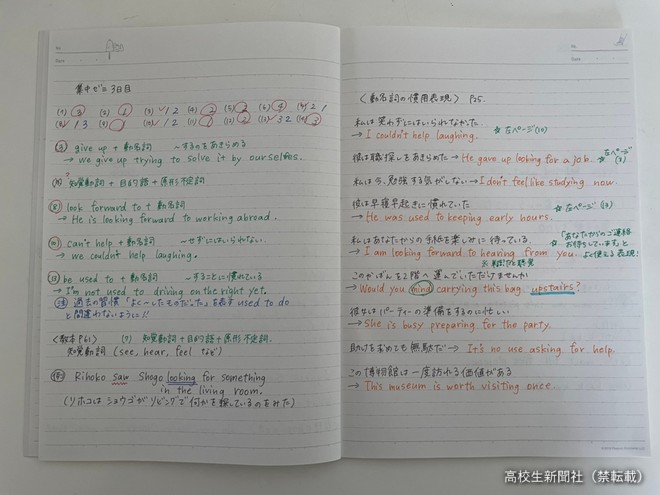 集中ゼミ 3日目
(1) 3 (2) 1 (3) 12 (4) 2 (5) 3 (6) 4 (7) 21
(8) 13 (9) (10) 12 (11) (12) 2 (13) 32
give up + 動名詞 ～するのをあきらめる
→ we give up trying to solve it by ourselves.
知覚動詞 + 目的語 + 原形不定詞
(8) look forward to + 動名詞
→ He is looking forward to working abroad.
(10) can't help + 動名詞 ～せずにはいられない
→ we couldn't help laughing.
(13) be used to + 動名詞 ～することに慣れている
→ I'm not used to driving on the right yet.
注 過去の習慣「よく～したものだった」を表す used to do
と間違わないように!!
<教本P61> (7) 知覚動詞+目的語+原形不定詞.
知覚動詞 (see, hear, feel など)
例 Rihoko saw Shogo looking for something
in the living room.
(リホコはショウゴがリビングで何かを探しているのをみた)
No.
Date
<動名詞の慣用表現> P25.
私は笑わずにはいられなかった.
→ I couldn't help laughing. ☆左ページ(10)
彼は職探しをあきらめた → He gave up looking for a job. ☆左ページ
私は今、勉強する気がしない → I don't feel like studying now.
彼は早寝早起きに慣れていた ☆左ページ(13)
→ He was used to keeping early hours.
私はあなたからの手紙を楽しみに待っている. ☆「あなたからのご連絡
お待ちしています」と
→ I am looking forward to hearing from you. よく使える表現!
このかばんを2階へ運んでいただけませんか
→ Would you mind carrying this bag upstairs?
彼女はパーティーの準備をするのに忙しい
→ She is busy preparing for the party.
助けを求めても無駄だ → It's no use asking for help.
この博物館は一度訪れる価値がある
→ This museum is worth visiting once.
高校生新聞社（禁転載）